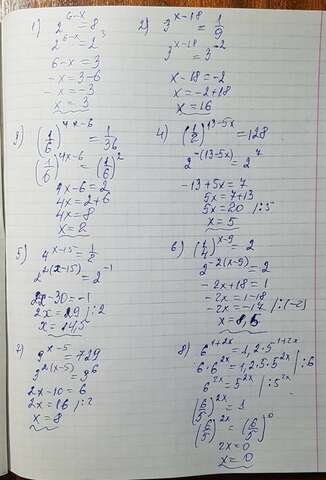 1) 2^{6-x} = 8
2^{6-x} = 2^3
6-x = 3
-x = 3-6
-x = -3
x = 3
2) 3^{x-18} = 1/9
3^{x-18} = 3^{-2}
x-18 = -2
x = -2+18
x = 16
3) (1/6)^{4x-6} = 1/36
(1/6)^{4x-6} = (1/6)^2
4x-6 = 2
4x = 2+6
4x = 8
x = 2
4) (1/2)^{13-5x} = 128
2^{-(13-5x)} = 2^7
-13+5x = 7
5x = 7+13
5x = 20 /:5
x = 5
5) 4^{x-15} = 1/2
2^{2(x-15)} = 2^{-1}
2x-30 = -1
2x = 29 /:2
x = 14,5
6) (1/4)^{x-9} = 2
2^{-2(x-9)} = 2
-2x+18 = 1
-2x = 1-18
-2x = -17 /:(-2)
x = 8,5
7) 9^{x-5} = 729
3^{2(x-5)} = 3^6
2x-10 = 6
2x = 16 /:2
x = 8
8) 6^{1+2x} = 1,2·5^{1+2x}
6·6^{2x} = 1,2·5·5^{2x} /:6
6^{2x} = 5^{2x} /:5^{2x}
(6/5)^{2x} = 1
(6/5)^{2x} = (6/5)^0
2x = 0
x = 0